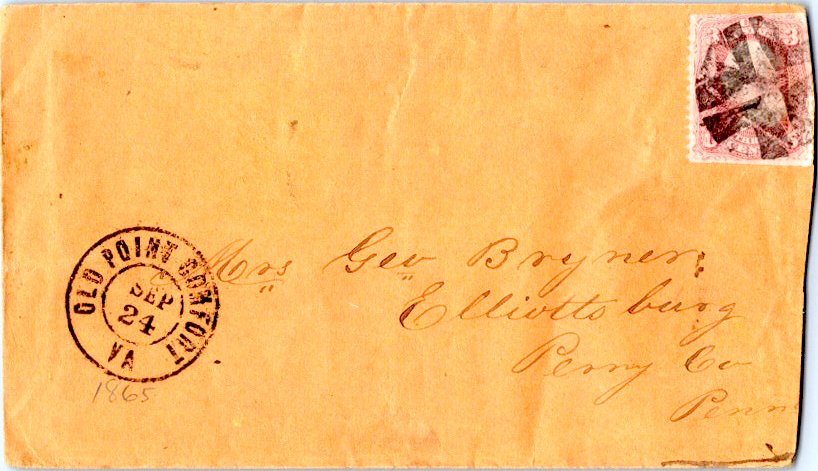 3
OLD POINT COMFORT
SEP
24
VA
1865
Mrs Geo Bryner
Elliottsburg
Perry Co
Penn